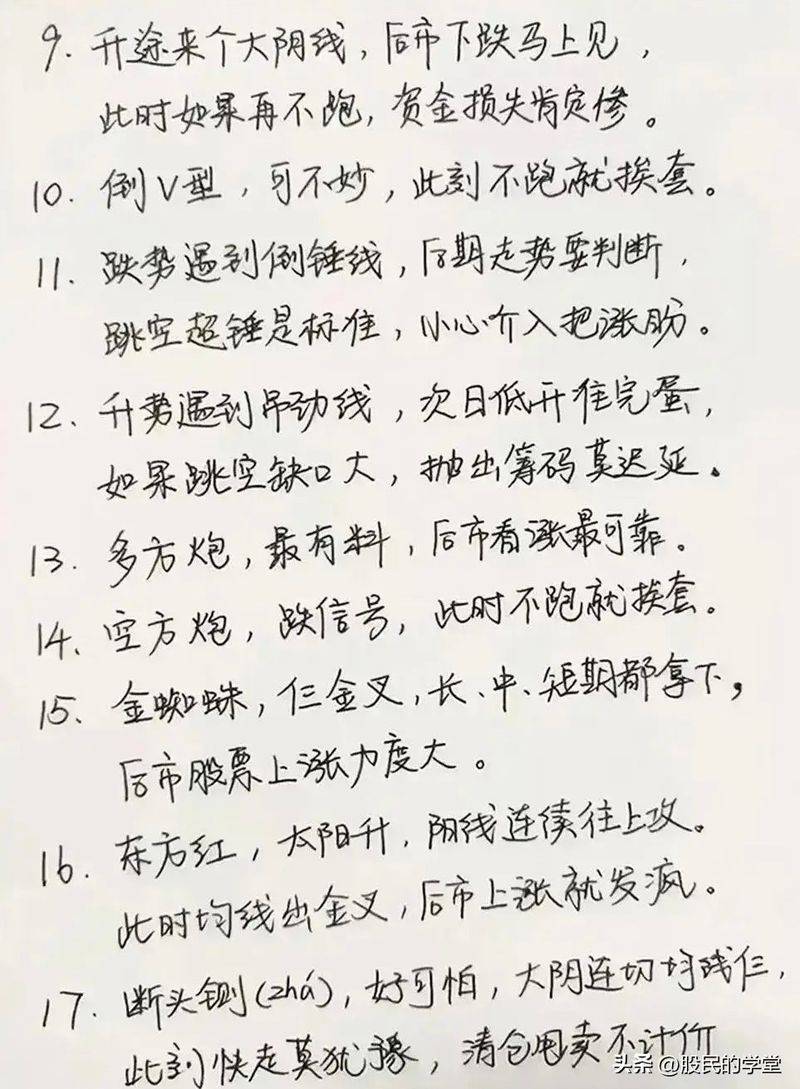 9. 升途来个大阴线，后市下跌马上见，
此时如果再不跑，资金损失肯定惨。
10. 倒V型，可不妙，此刻不跑就挨套。
11. 跌势遇到倒锤线，后期走势要判断，
跳空超锤是标准，小心介入把涨盼。
12. 升势遇到吊劲线，次日低开准完蛋，
如果跳空缺口大，抛出筹码莫迟延。
13. 多方炮，最有料，后市看涨最可靠。
14. 空方炮，跌信号，此时不跑就挨套。
15. 金蜘蛛，仨金叉，长、中、短期都拿下，
后市股票上涨力度大。
16. 东方红，太阳升，阳线连续往上攻。
此时均线出金叉，后市上涨就发疯。
17. 断头铡(zhá)，好可怕，大阴连切均线仨，
此刻快走莫犹豫，清仓甩卖不计价
头条 @股民的学堂